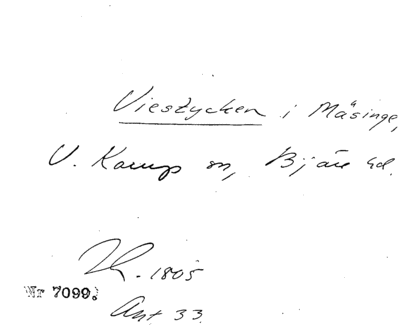 Viestycken i Mäsinge,
V. Karup sn, Bjäre hd.
Th. 1805
Nr 7099.
Ant 33